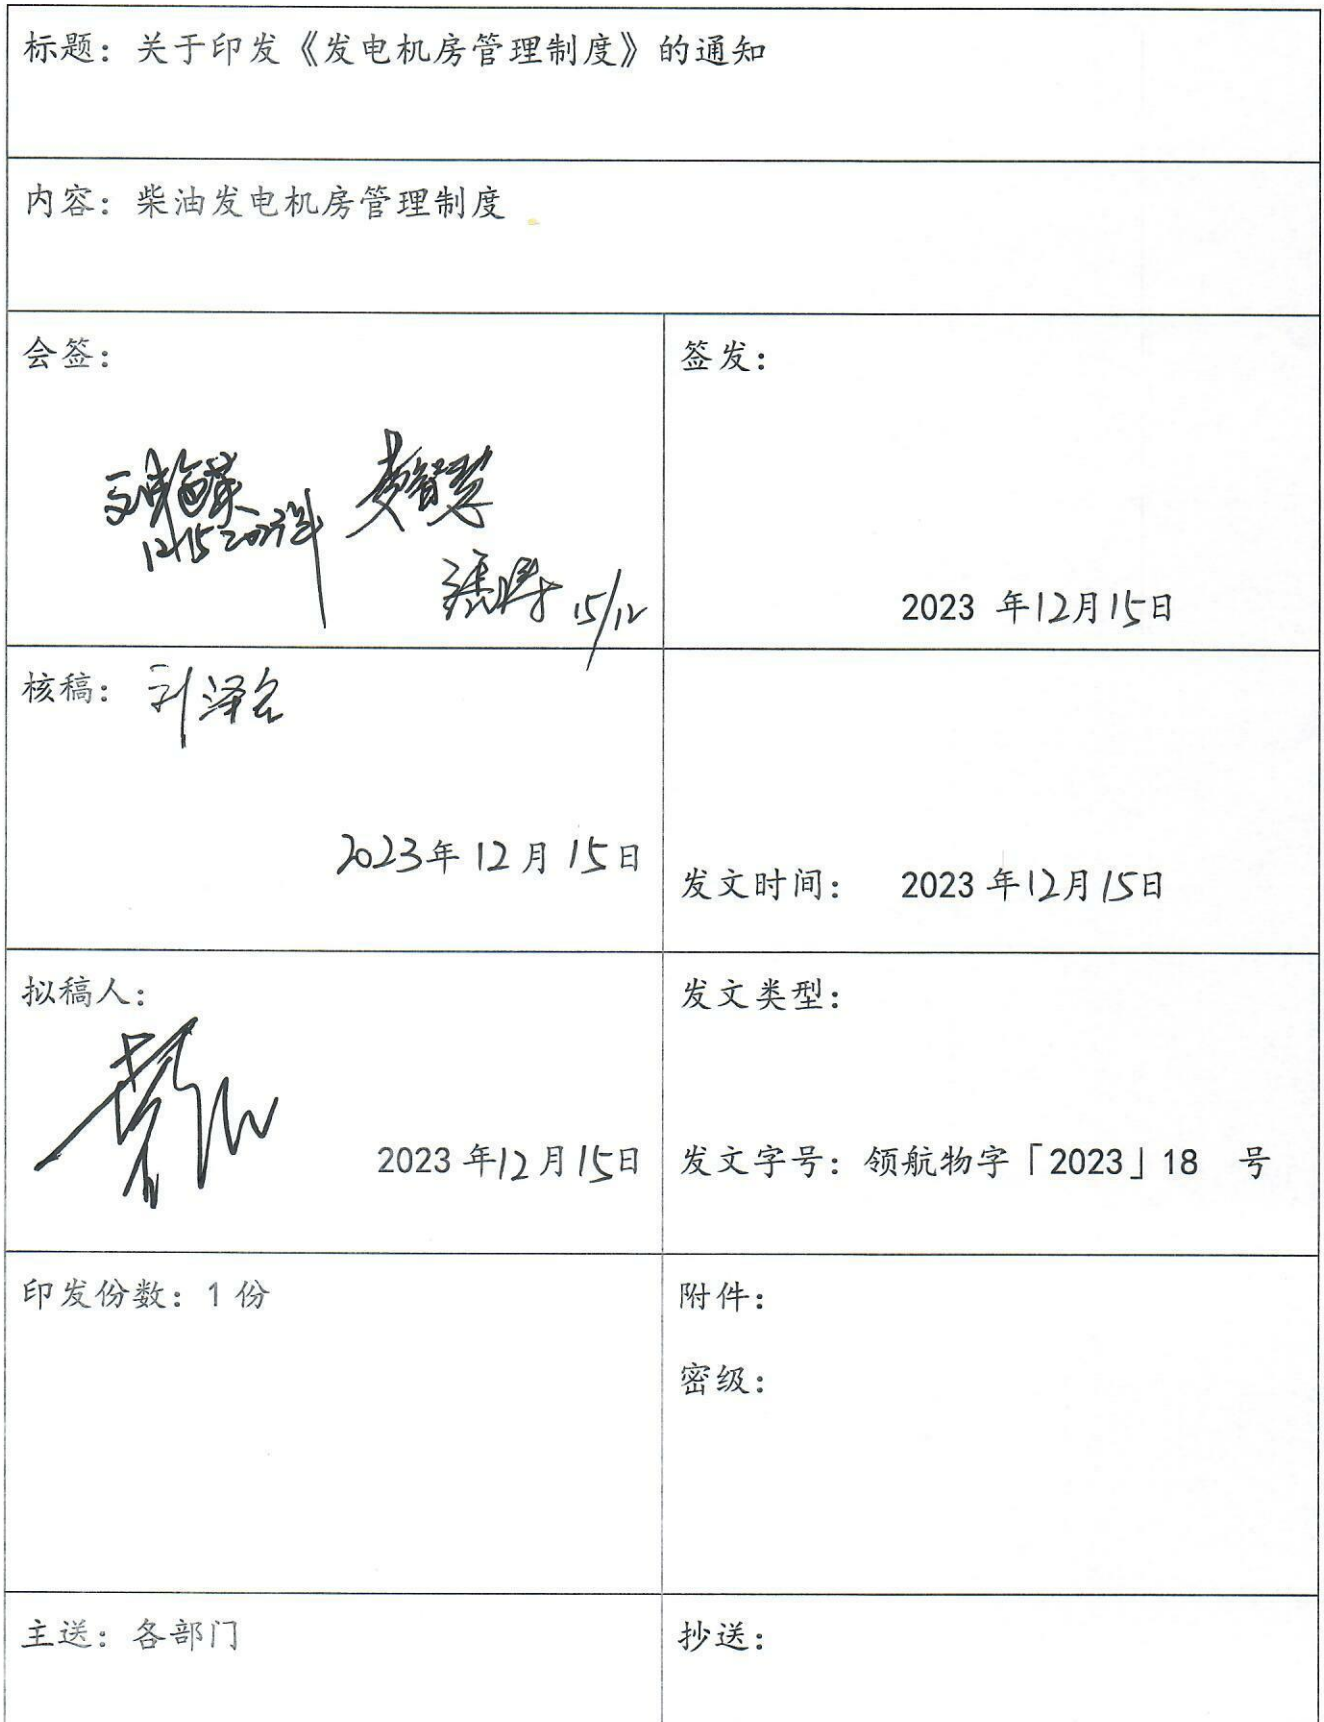 标题：关于印发《发电机房管理制度》的通知
内容：柴油发电机房管理制度
会签：
12/15 2023年
15/12
签发：
2023 年12月15日
核稿：
2023年12月15日
发文时间： 2023年12月15日
拟稿人：
2023年12月15日
发文类型：
发文字号：领航物字「2023」18 号
印发份数：1份
附件：
密级：
主送：各部门
抄送：